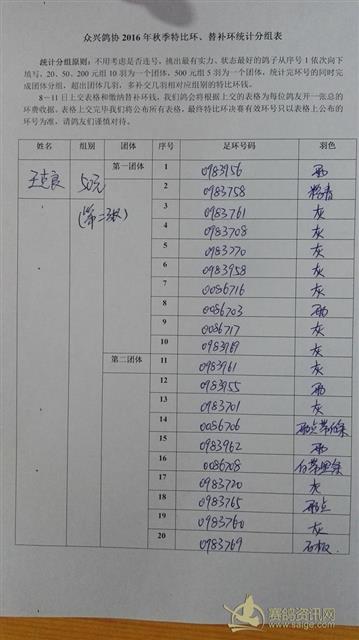 众兴鸽协 2016 年秋季特比环、替补环统计分组表
统计分组原则：不用考虑是否连号，挑出最有实力、状态最好的鸽子从序号 1 依次向下
填写，20、50、200 元组 10 羽为一个团体，500 元组 5 羽为一个团体，统计完环号的同时完
成团体分组，超出团体几羽，多补交几羽相对应组别的特比环钱。
8－11 日上交表格和缴纳替补环钱，我们鸽会将根据上交的表格为每位鸽友开一张总的
环费收据。表格上交完毕我们将公布所有表格，最终特比环决赛有效环号只以表格上公布的
环号为准，请鸽友们谨慎对待。
姓名 组别 团体 序号 足环号码 羽色
50元 第一团体 1 0983956 雨
2 0983758
3 0983761 灰
4 0983708 灰
5 0983770 灰
6 0983958 灰
7 0086716 灰
8 0086703 雨
9 0086717 灰
10 0983969 灰
第二团体 11 0983961 灰
12 0983955 雨
13 0983701 灰
14 0086706
15 0983962 雨
16 0086708
17 0983720 灰
18 0983765 雨点
19 0983760 灰
20 0983769 石板
赛鸽资讯网
www.saige.com